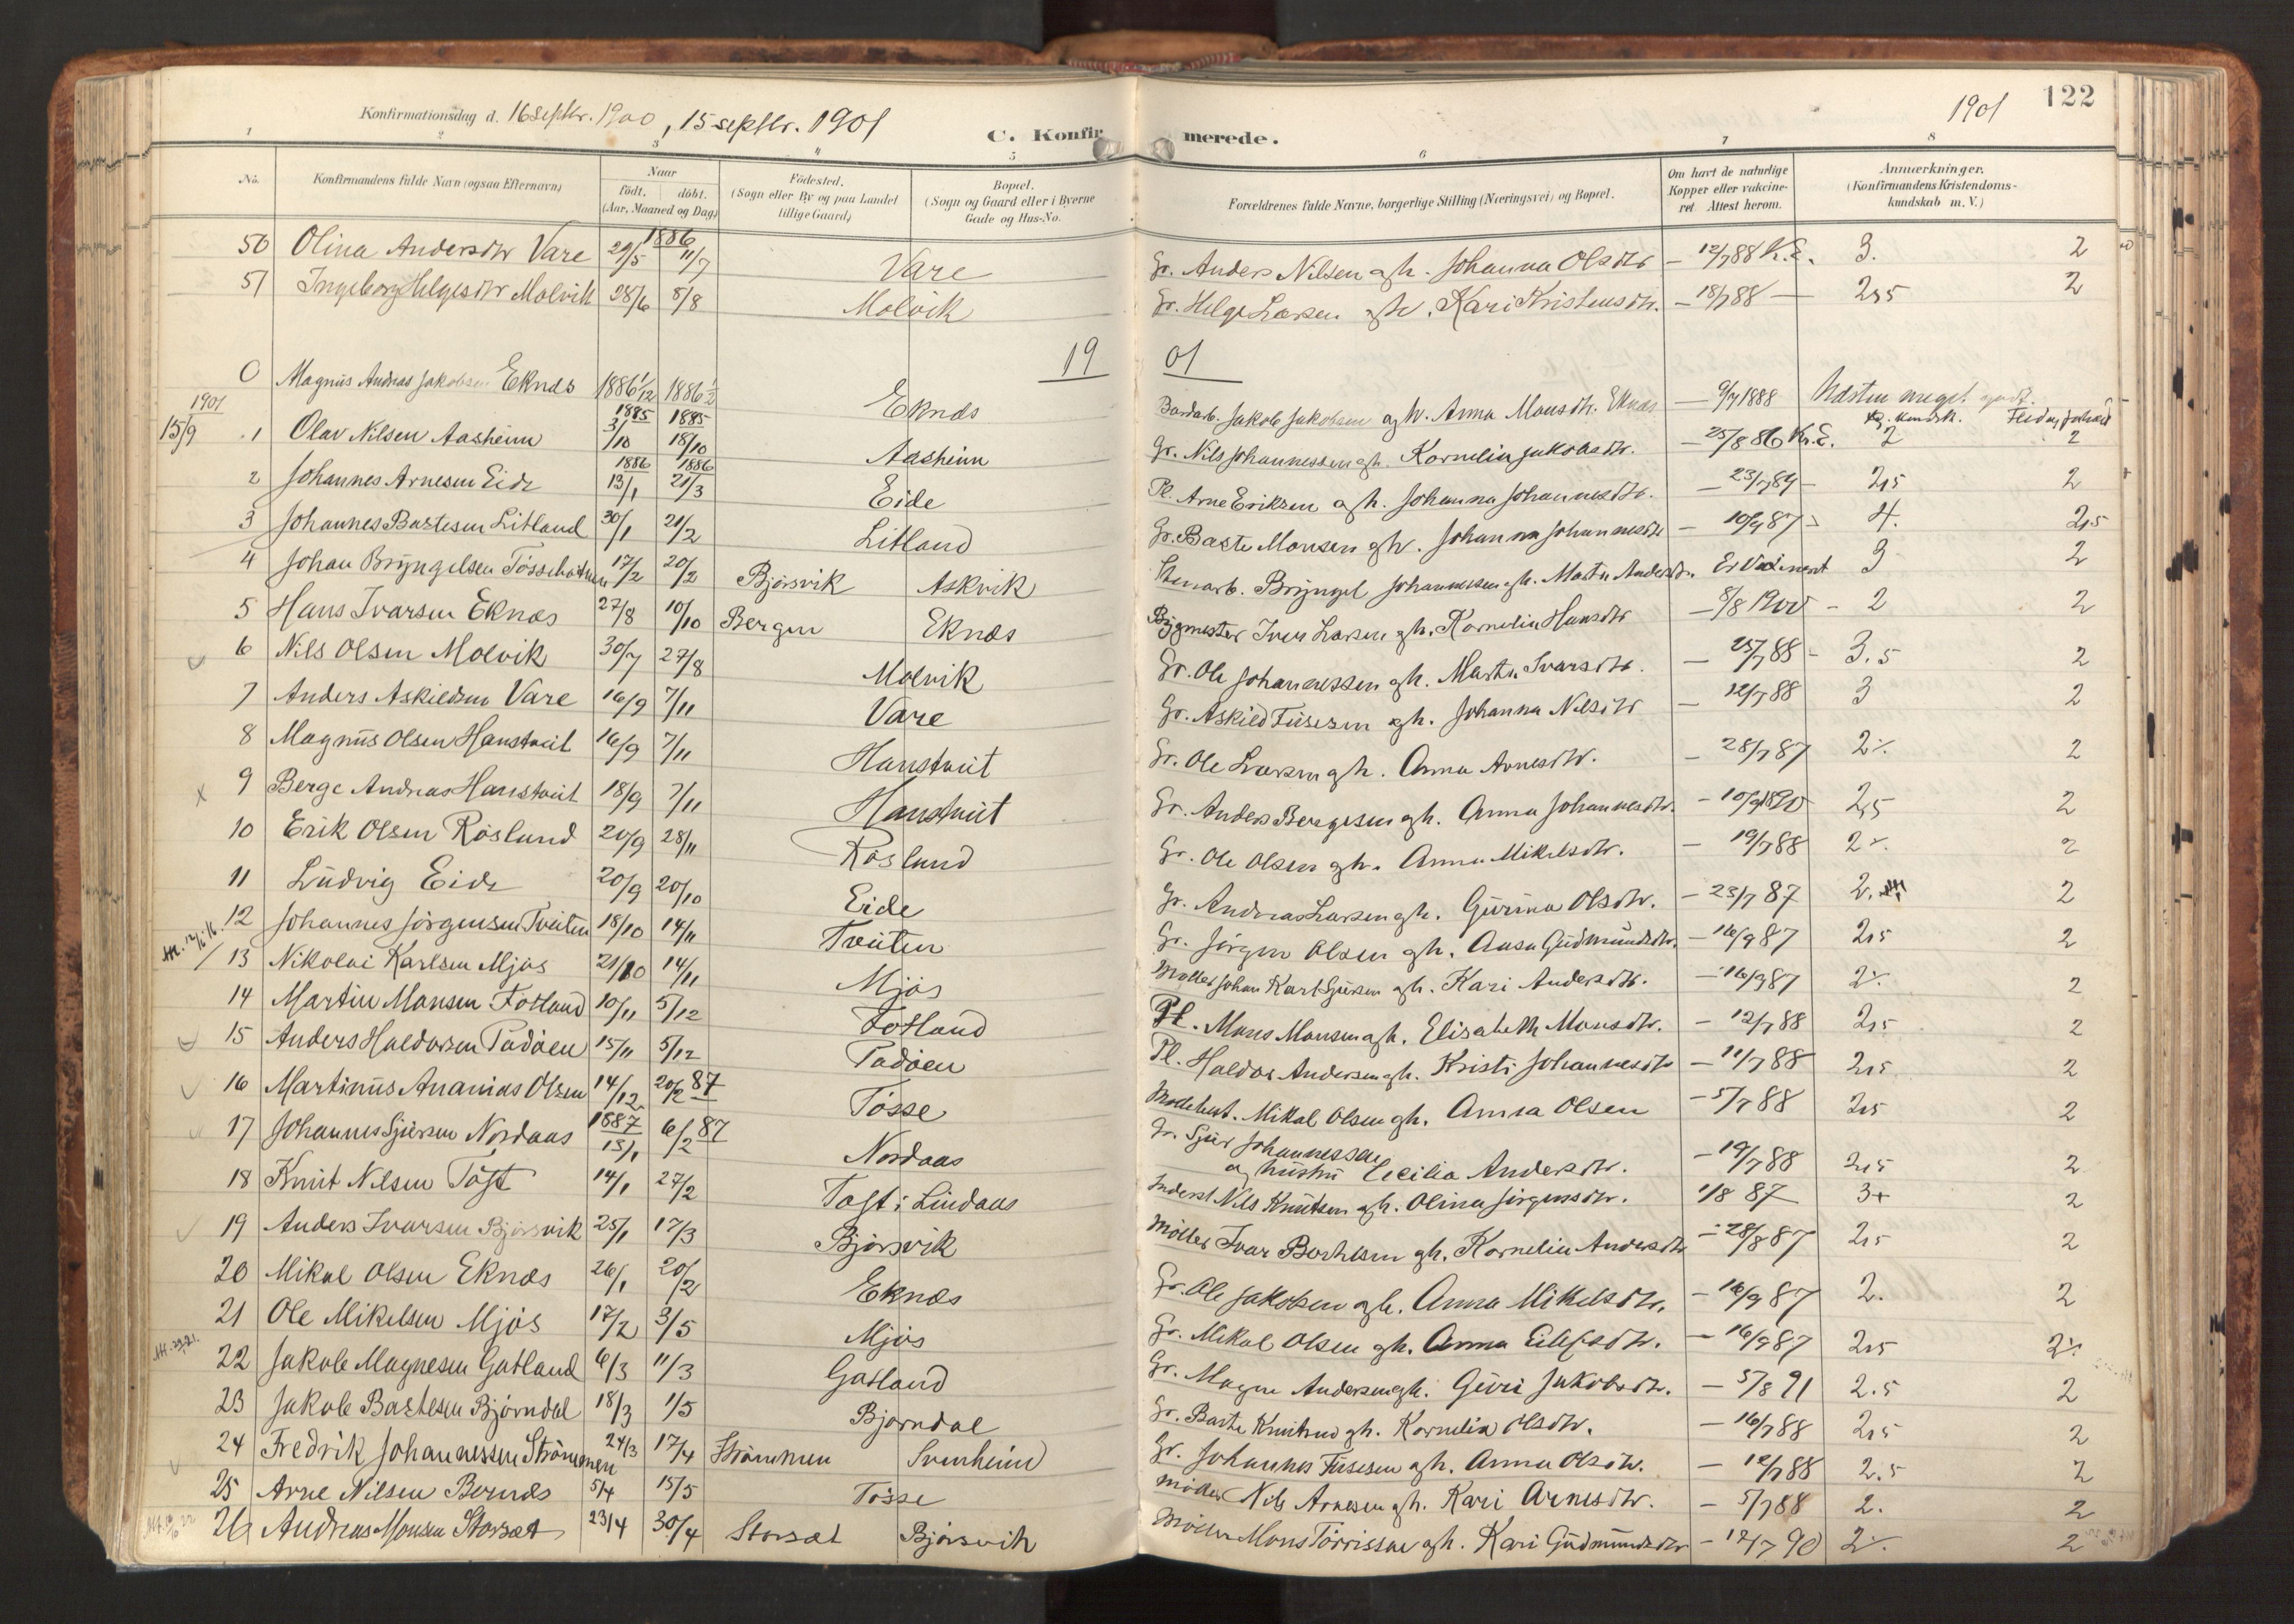 122
Konfirmationsdag d. 16 septbr. 1900, 15 septbr. 1901
C. Konfirmerede.
1901
1 2 3 4 5 6 7 8
No. Konfirmandens fulde Navn (ogsaa Efternavn) Naar født. døbt. (Aar, Maaned og Dag) Fødested. (Sogn eller By og paa Landet tillige Gaard) Bopæl. (Sogn og Gaard eller i Byerne Gade og Hus-No. Forældrenes fulde Navne, borgerlige Stilling (Næringsvei) og Bopæl. Om havt de naturlige Kopper eller vaccineret. Attest herom. Anmærkninger. (Konfirmandens Kristendomskundskab m. V.)
50 Olina Andersdtr Vare 1886 29/5 11/7 Vare Gr. Anders Nilsen og h. Johanna Olsdtr – 12/7 88 K.E. 3. 2
51 Ingeborg Helgesdtr Molvik 28/6 8/8 Molvik Gr. Helge Larsen og h. Kari Kristensdtr. – 18/7 88 – 2,5 2
19 01
0 Magnus Andreas Jakobsen Eknæs 1886 1/12 1886 Eknæs Jakob Jakobsen og h. Anna Monsdtr. Eknæs – 9/7 1888 Næsten meget godt.
1901 15/9 1 Olav Nilsen Aasheim 1885 3/10 1885 18/10 Aasheim Gr. Nils Johannessen og h. Kornelia Jakobsdtr. – 25/8 86 K.E. 2 2
2 Johannes Arnesen Eide 1886 13/1 1886 21/3 Eide Pl. Arne Eriksen og h. Johanna Johannesdtr. – 23/7 89 – 2,5 2
3 Johannes Bastesen Litland 30/1 21/2 Litland Gr. Baste Monsen og h. Johanna Johannesdtr – 10/9 87 – 4. 2,5
4 Johan Bryngelsen 17/2 20/2 Bjørsvik Askvik Bryngel Johannessen og h. Marta Andersdtr. 3 2
5 Hans Ivarsen Eknæs 27/8 10/10 Bergen Eknæs Bygmester Iver Larsen og h. Kornelia Hansdtr – 8/8 1900 – 2 2
6 Nils Olsen Molvik 30/7 27/8 Molvik Gr. Ole Johannessen og h. Marta Ivarsdtr. – 25/7 88 – 3.5 2
7 Anders Askildsen Vare 16/9 7/11 Vare Gr. Askild Fusesen og h. Johanna Nilsdtr – 12/7 88 3 2
8 Magnus Olsen Hanstveit 16/9 7/11 Hanstveit Gr. Ole Larsen og h. Anna Arnesdtr. – 28/7 87 2 2
x 9 Berge Andreas Hanstveit 18/9 7/11 Hanstveit Gr. Anders Bergesen og h. Anna Johannesdtr. – 10/9 1890 2,5 2
10 Erik Olsen Røslund 20/9 28/11 Røslund Gr. Ole Olsen og h. Anna Mikelsdtr. – 19/7 88 2 2
11 Ludvig Eide 20/9 20/10 Eide Gr. Andreas Larsen og h. Gurina Olsdtr. – 23/7 87 2. 2
12 Johannes Jørgensen Tveiten 18/10 14/11 Tveiten Gr. Jørgen Olsen og h. Aasa Gudmundsdtr. – 16/9 87 2,5 2
13 Nikolai Karlsen Mjøs 21/10 14/11 Mjøs Møller Johan Karl Sjursen og h. Kari Andersdtr. – 16/9 87 2 2
14 Martin Monsen Fotland 10/11 5/12 Fotland Pl. Mons Monsen og h. Elisabeth Monsdtr. – 12/7 88 2,5 2
15 Anders Haldorsen Tadøen 15/11 5/12 Tadøen Pl. Haldor Andersen og h. Kristi Johannesdtr – 11/7 88 2,5 2
16 Martinus Ananias Olsen 14/12 20/2 87 Tøsse Mikal Olsen og h. Anna Olsen – 5/7 88 2,5 2
17 Johannes Sjursen Nordaas 1887 13/1 6/2 87 Nordaas Gr. Sjur Johannessen og hustru Cecilia Andersdtr. – 19/7 88 2,5 2
18 Knut Nilsen Toft 14/1 27/2 Toft i Lindaas Inderst Nils Knutsen og h. Olina Jørgensdtr. 1/8 87 3+ 2
19 Anders Ivarsen Bjørsvik 25/1 17/3 Bjørsvik Møller Ivar Bertelsen og h. Kornelia Andersdtr – 28/8 87 2,5 2
20 Mikal Olsen Eknæs 26/1 20/2 Eknæs Gr. Ole Jakobsen og h. Anna Mikelsdtr. – 16/9 87 2. 2
21 Ole Mikelsen Mjøs 17/2 3/5 Mjøs Gr. Mikal Olsen og h. Anna Eilifsdtr. – 16/9 87 2,5 2
22 Jakob Magnesen Gatland 6/3 11/3 Gatland Gr. Magne Andersen og h. Guri Jakobsdtr. – 5/8 91 2.5 2
23 Jakob Bastesen Bjørndal 18/3 1/5 Bjørndal Gr. Baste Knutsen og h. Kornelia Olsdtr. – 16/7 88 2,5 2
24 Fredrik Johannessen Strømmen 24/3 17/4 Strømmen Svenheim Gr. Johannes Fusesen og h. Anna Olsdtr. – 12/7 88 2.5 2
25 Arne Nilsen Bernæs 5/4 15/5 Tøsse Møller Nils Arnesen og h. Kari Arnesdtr. – 5/7 88 2. 2
26 Andreas Monsen Storsæt 23/4 30/4 Storsæt Bjørsvik Møller Mons Tørrissen og h. Kari Gudmundsdtr – 17/7 90 2 2